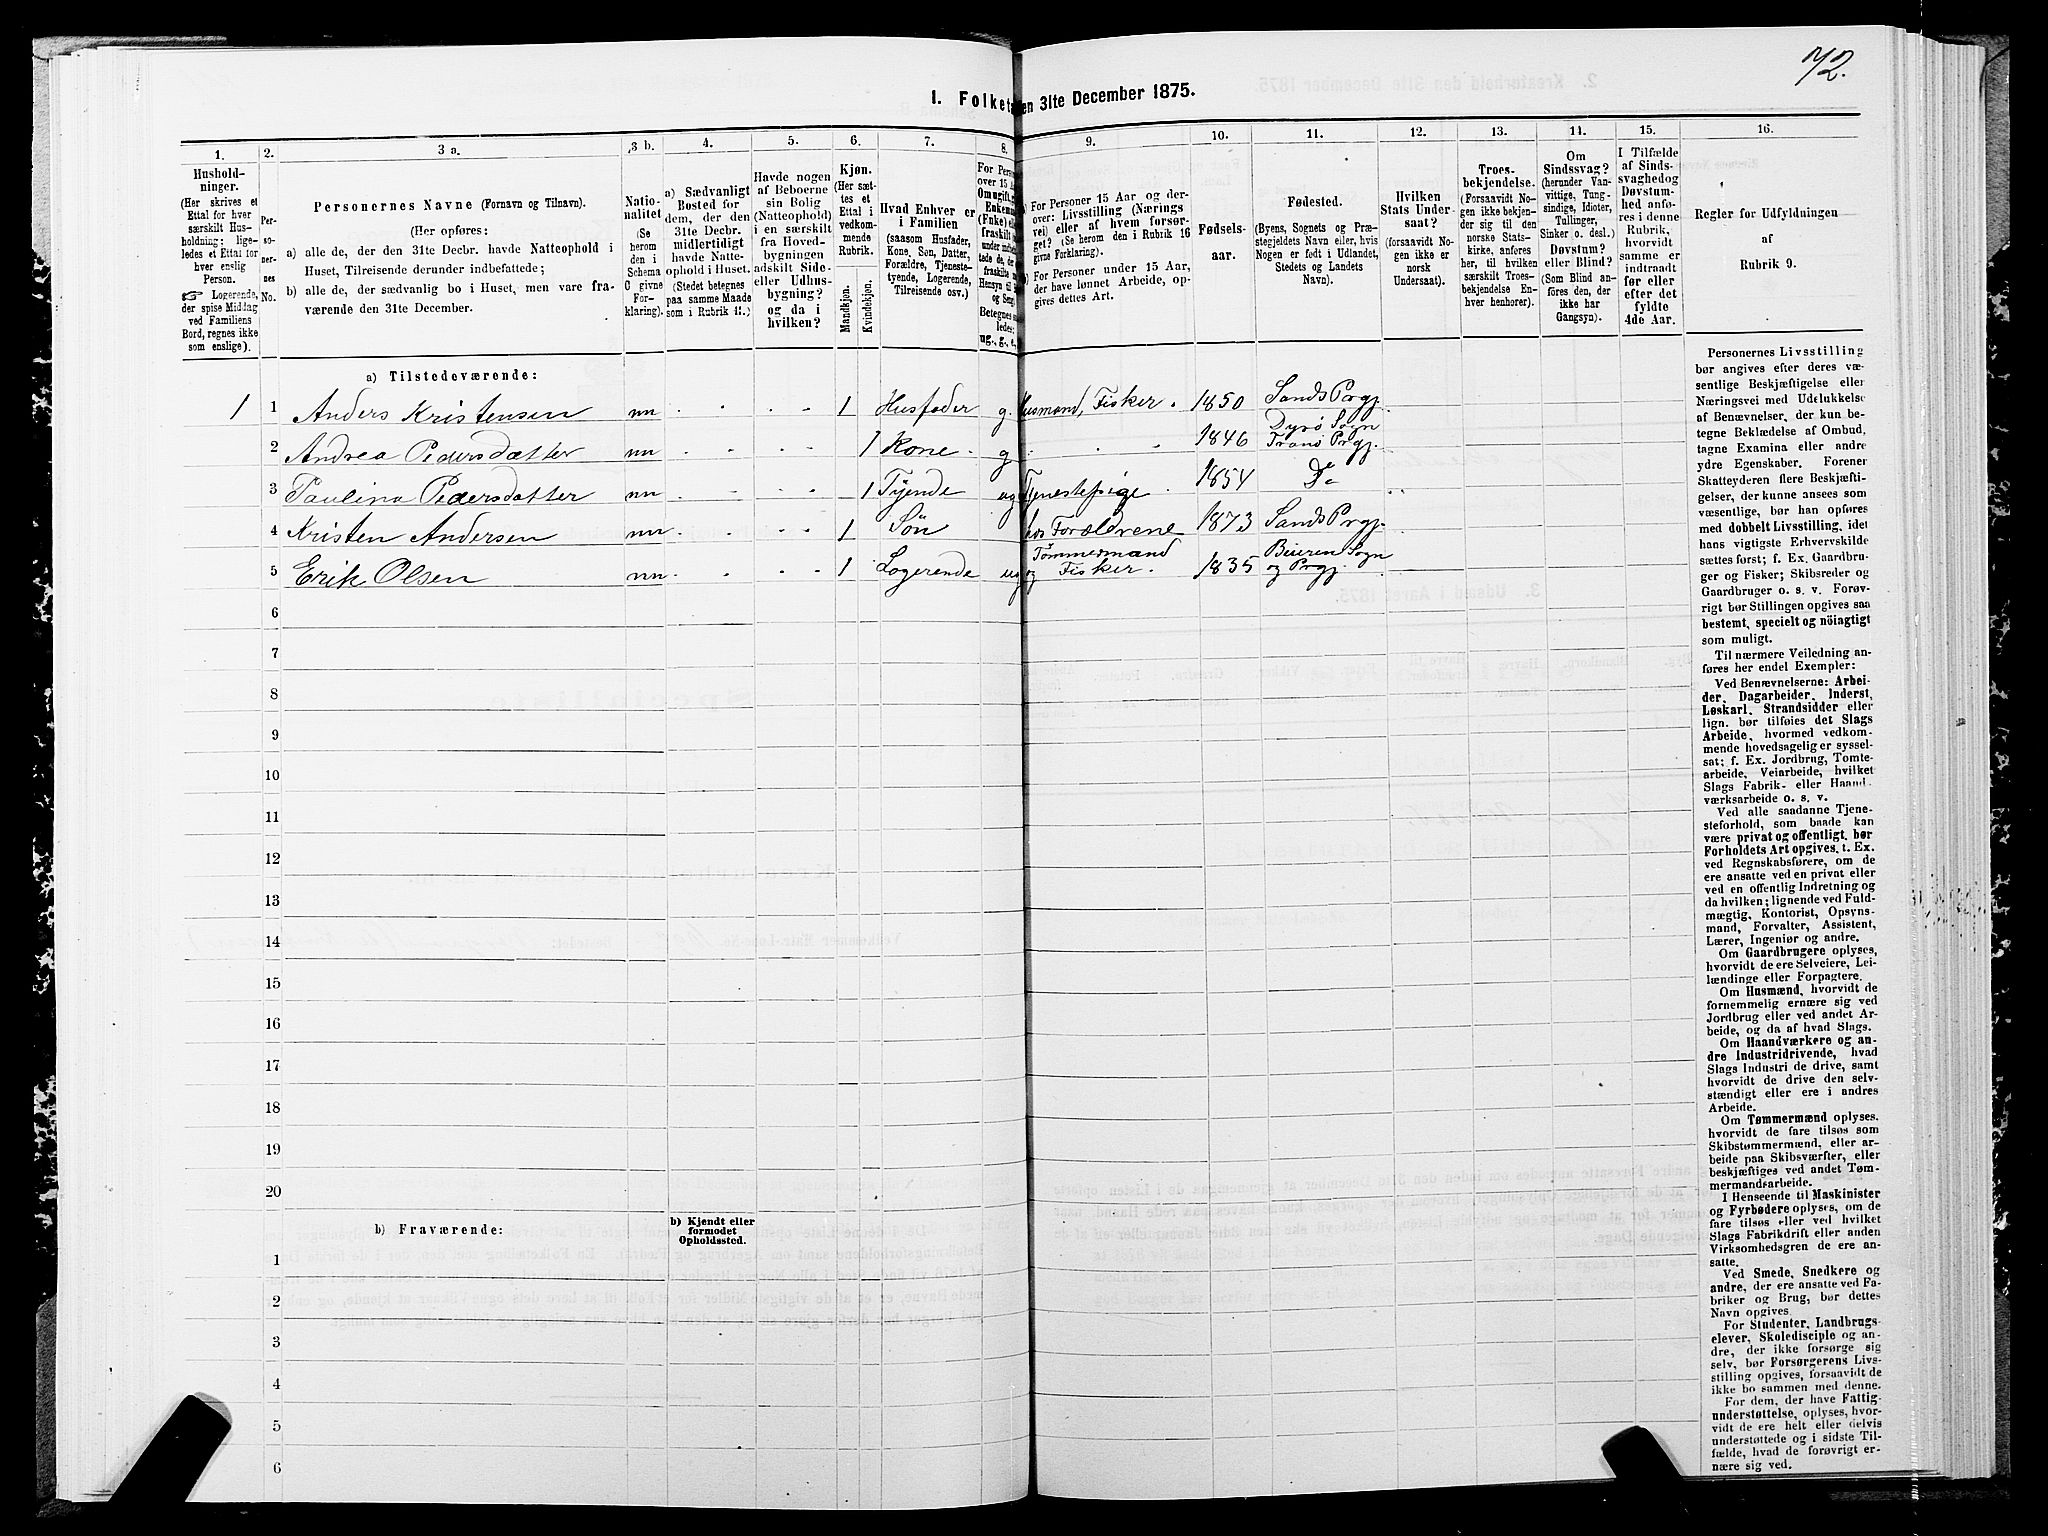 72.
1. Folketæ en 31te December 1875.
1. 2. 3 a. 3 b. 4. 5. 6. 7. 8. 9. 10. 11. 12. 13. 14. 15. 16.
Hushold-
ninger.
(Her skrives et
Ettal for hver
særskilt Hus-
holdning; lige-
ledes et Ettal for
hver enslig
Person.
☞ Logerende,
der spise Middag
ved Familiens
Bord, regnes ikke
som enslige).
Per-
so-
ner-
nes
No.
Personernes Navne (Fornavn og Tilnavn).
(Her opføres:
a) alle de, der den 31te Decbr. havde Natteophold i
Huset, Tilreisende derunder indbefattede;
b) alle de, der sædvanlig bo i Huset, men vare fra-
værende den 31te December.
Natio-
nalitet
(Se
herom
den i
Schema
C givne
For-
klaring).
a) Sædvanligt
Bosted for
dem, der den
31te Decbr.
midlertidigt
havde Natte-
ophold i Huset.
(Stedet betegnes
paa samme Maade
som i Rubrik 11.)
Havde nogen
af Beboerne
sin Bolig
(Natteophold)
i en særskilt
fra Hoved-
bygningen
adskilt Side-
eller Udhus-
bygning?
og da i
hvilken?
Kjøn.
(Her sæt-
tes et
Ettal i
vedkom-
mende
Rubrik.
Mandkjøn.
Kvindekjøn.
Hvad Enhver er
i Familien
(saasom Husfader,
Kone, Søn, Datter,
Forældre, Tjeneste-
tyende, Logerende,
Tilreisende osv.)
For Person
over 15 A
Om ugift, g
Enkema
(Fnke) el
fraskilt
Betegnes s
ledes:
ug., g., e.,
For Personer 15 Aar og der-
over: Livsstilling (Nærings
vei) eller af hvem forsør-
get? (Se herom den i Rubrik 16
givne Forklaring).
For Personer under 15 Aar,
der have lønnet Arbeide, op-
gives dettes Art.
Fødsels-
aar.
Fødested.
(Byens, Sognets og Præ-
stegjeldets Navn eller, hvis
Nogen er født i Udlandet,
Stedets og Landets
Navn).
Hvilken
Stats Under-
saat?
(forsaavidt No-
gen ikke er
norsk
Undersaat).
Troes-
bekjendelse.
(Forsaavidt No-
gen ikke bekjen-
der sig til den
norske Stats-
kirke, anføres
her, til hvilken
særskilt Troes-
bekjendelse En-
hver henhører).
Om
Sindssvag?
(herunder Van-
vittige, Tung-
sindige, Idioter,
Tullinger,
Sinker o. desl.)
Døvstum?
eller Blind?
(Som Blind an-
føres den, der
ikke har
Gangsyn).
I Tilfælde
af Sinds-
svaghedog
Døvstum-
hed anfø-
res i denne
Rubrik,
hvorvidt
samme er
indtraadt
før eller
efter det
fyldte
4de Aar.
Regler for Udfyldningen
af
Rubrik 9.
a) Tilstedeværende:
1 1 Anders Kristensen nn 1 Husfader g. Husmand, Fisker. 1850 Sands Prgj.
2 Andrea Pedersdatter nn 1 Kone g 1846 Dyrø Sogn
Tranø Prgj.
3 Paulina Pedersdatter nn 1 Tyende ug Tjenestepige 1854 Do
4 Kristen Andersen nn 1 Søn hos Forældrene 1873 Sands Prgj.
5 Erik Olsen nn 1 Logerende ug Tømmermand
og Fisker. 1835 Beieren Sogn
og Prgj.
6
7
8
9
10
11
12
13
14
15
16
17
18
19
20
b) Fraværende:
b) Kjendt eller
formodet
Opholdssted.
1
2
3
4
5
6
Personernes Livsstilling
bør angives efter deres væ-
sentlige Beskjæftigelse eller
Næringsvei med Udelukkelse
af Benævnelser, der kun be-
tegne Beklædelse af Ombud,
tagne Examina eller andre
ydre Egenskaber. Forener
Skatteyderen flere Beskjæfti-
gelser, der kunne ansees som
væsentlige, bør han opføres
med dobbelt Livsstilling, idet
hans vigtigste Erhvervskilde
sættes først; f. Ex. Gaardbru-
ger og Fisker; Skibsreder og
Gaardbruger o. s. v. Forøv-
rigt bør Stillingen opgives saa
bestemt, specielt og nöiagtigt
som muligt.
Til nærmere Veiledning an-
føres her endel Exempler:
Ved Benævnelserne: Arbei-
der, Dagarbeider, Inderst,
Løskarl, Strandsidder eller
lign. bør tilføies det Slags
Arbeide, hvormed vedkom-
mende hovedsagelig er syssel-
sat; f. Ex. Jordbrug, Tomte-
arbeide, Veiarbeide, hvilket
Slags Fabrik- eller Haand-
værksarbeide o. s. v.
Ved alle saadanne Tjene-
steforhold, som baade kan
være privat og offentligt, bør
Forholdets Art opgives, t. Ex.
ved Regnskabsførere, om de
ere ansatte ved en privat eller
ved en offentlig Indretning og
da hvilken; lignende ved Fuld-
mægtig, Kontorist, Opsyns-
mand, Forvalter, Assistent,
Lærer, Ingeniør og andre.
Om Gaardbrugere oplyses,
hvorvidt de ere Selveiere, Lei-
lændinge eller Forpagtere.
Om Husmænd, hvorvidt de
fornemmelig ernære sig ved
Jordbrug eller ved andet Ar-
beide, og da af hvad Slags.
Om Haandværkere og an-
dre Industridrivende, hvad
Slags Industri de drive, samt
hvorvidt de drive den selv-
stændigt eller ere i andres
Arbeide.
Om Tømmermænd oplyses,
hvorvidt de fare tilsøs som
Skibstømmermænd, eller ar-
beide paa Skibsværfter, eller
beskjæftiges ved andet Tøm-
mermandsarbeide.
I Henseende til Maskinister
og Fyrbødere oplyses, om de
fare tilsøs eller ved hvilket
Slags Fabrikdrift eller anden
Virksomhedsgren de ere an-
satte.
Ved Smede, Snedkere og
andre, der ere ansatte ved Fa-
briker og Brug, bør dettes
Navn opgives.
For Studenter, Landbrugs-
elever, Skoledisciple og an-
dre, der ikke forsørge sig
selv, bør Forsørgerens Livs-
stilling opgives, forsaavidt de
ikke bo sammen med denne.
For dem, der have Fattig-
understøttelse, oplyses, hvor-
vidt de ere helt eller delvis
understøttede og i sidste Til-
fælde, hvad de forøvrigt er-
nære sig ved.